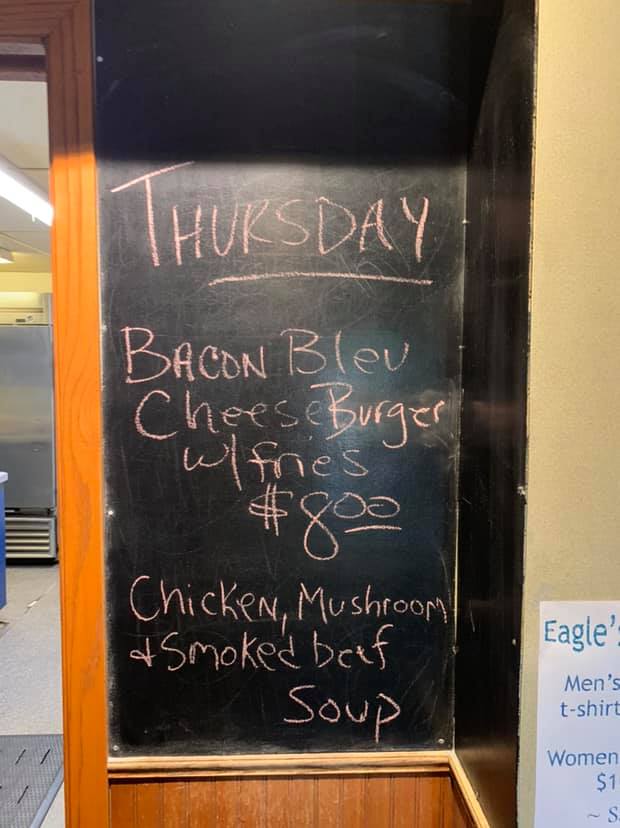 THURSDAY
BACON Bleu
Cheese Burger
w/ fries
$8.00
Chicken, Mushroom
& Smoked beef
Soup
Eagle's
Men's
t-shirt
Women
$1